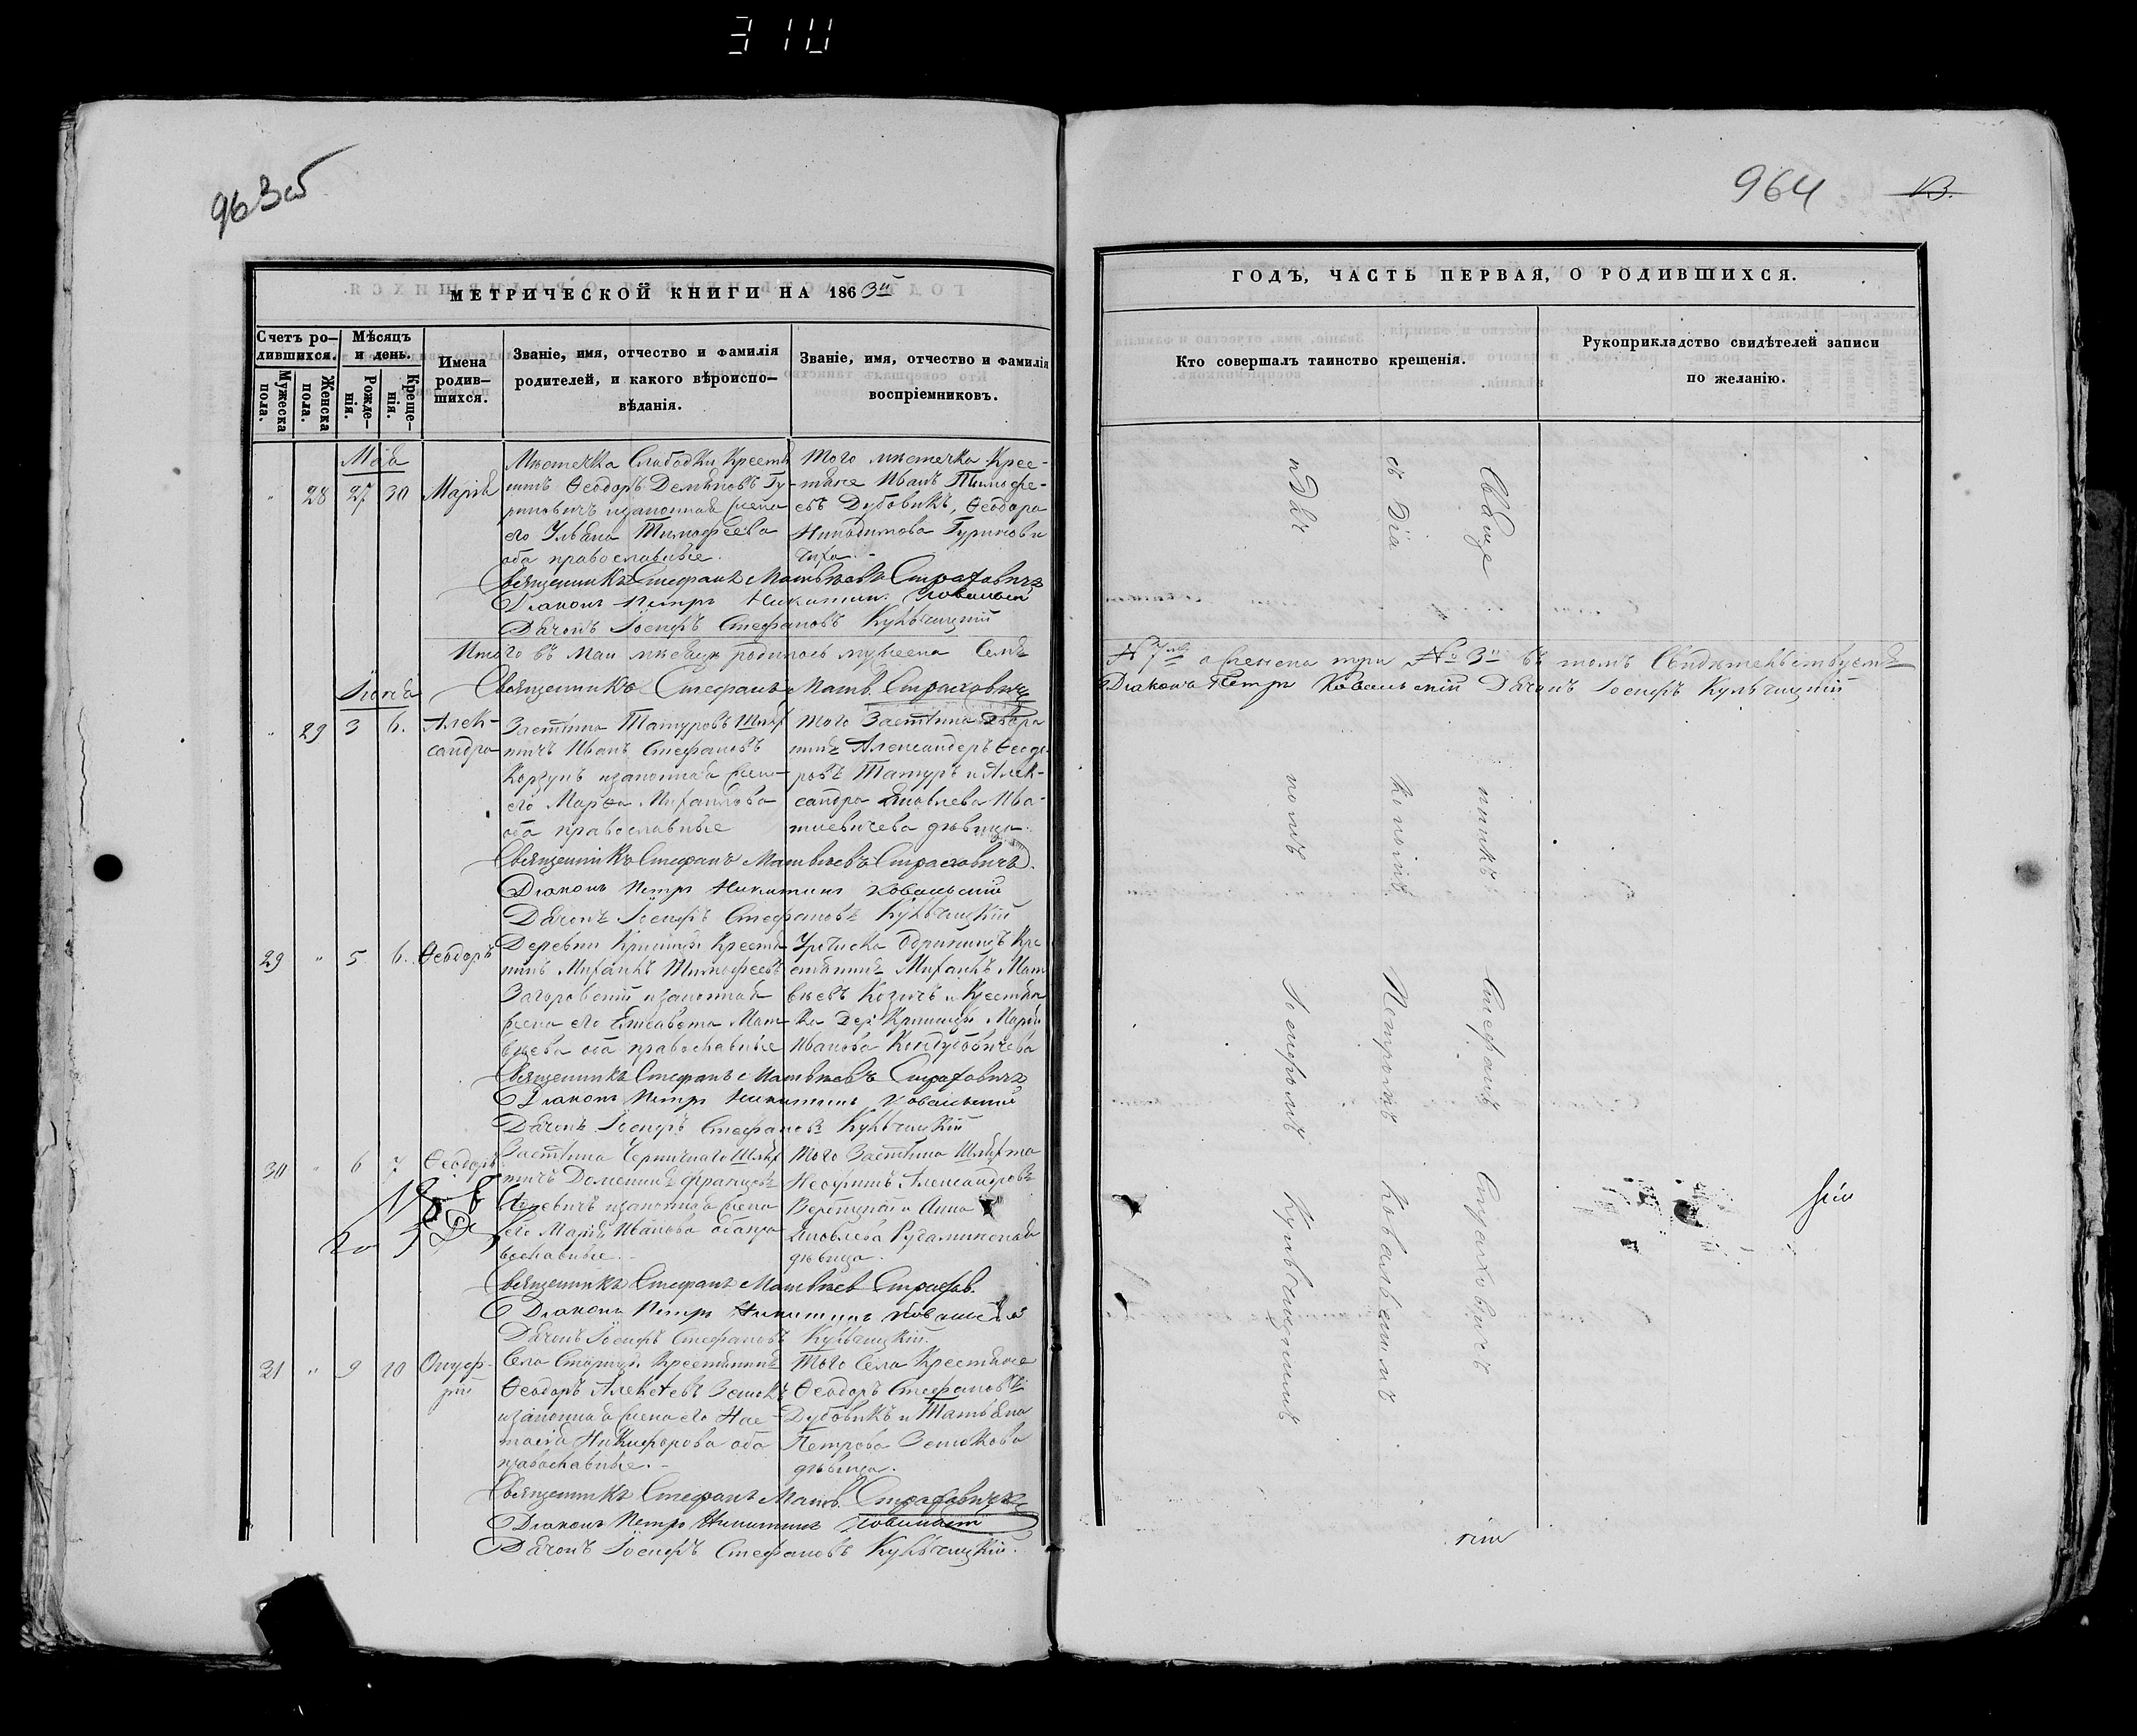 310
963об
964
13.
МЕТРИЧЕСКОЙ КНИГИ НА 1863й
ГОДЪ, ЧАСТЬ ПЕРВАЯ, О РОДИВШИХСЯ.
Счетъ ро-
дившихся.
Мужеска
пола.
Женска
пола.
Мѣсяцъ
и день.
Рожде-
нія.
Креще-
нія.
Имена
родив-
шихся.
Званіе, имя, отчество и фамилія
родителей, и какого вѣроиспо-
вѣданія.
Званіе, имя, отчество и фамилія
воспріемниковъ.
Кто совершалъ таинство крещенія.
Рукоприкладство свидѣтелей записи
по желанію.
Мая
28 27 30 Марія
Мѣстечка Слабодки Крестья
нинъ Ѳеодоръ Демьяновъ Гу-
риновичъ изаконная жена
его Ульяна Тимофѣева
оба православные.
Того мѣстечка Крес-
тьяне Иванъ Тимофе-
евъ Дубовикъ, Ѳеодора
Никодимова Гуринови
чиха.
Священникъ Стефанъ Матвѣевъ Страховичъ
Діаконъ Петръ Никитинъ Ковальскій
Дьячокъ Іосифъ Стефановъ Кульчицкій
Итого въ Маи мѣсяцѣ родилось мужеска Семь
Священникъ Стефанъ Матв. Страховичъ
№ 7 а женска три № 3й въ томъ Свидѣтельствуемъ
Діаконъ Петръ Ковальскій Дьячокъ Іосифъ Кульчицкій
Іюня
29 3 6. Алек-
сандра
Застѣнка Татуровъ Шлях
тичъ Иванъ Стефановъ
Корзунъ изаконная жена
его Марѳа Михаилова
оба православные
Того Застѣнка Дворя
нинъ Александеръ Ѳеодо
ровъ Татуръ и Алек-
сандра Яковлева Ива-
шкевичева дѣвица.
Священникъ Стефанъ Матвѣевъ Страховичъ.
Діаконъ Петръ Никитинъ Ковальскій
Дьячокъ Іосифъ Стефановъ Кульчицкій
29 " 5 6. Ѳеодоръ
Деревни Криницы Крестья
нинъ Михаилъ Тимофеевъ
Загоровскій изаконная
жена его Елисавета Мат-
вѣева оба православные
Кре
стьянинъ Михаилъ Мат
вѣевъ Козичъ и Крестьян
ка Дер. Криницы Марія
Иванова
Священникъ Стефанъ Матвѣевъ Страховичъ
Діаконъ Петръ Никитинъ Ковальскій
Дьячокъ Іосифъ Стефановъ Кульчицкій
30 " 6 7 Ѳеодоръ
Застѣнка Шлях
тичъ Доменикъ Францовъ
изаконная жена
его Марія Иванова оба пра
вославные.
Того Застѣнка Шляхта
Александровъ
и Анна
Яковлева
дѣвица.
Священникъ Стефанъ Матвѣев Страхов.
Діаконъ Петръ Никитинъ Ковальскій
Дьячокъ Іосифъ Стефановъ Кульчицкій.
31 " 9 10 Онуф-
рій
Села Старицы Крестьянинъ
Ѳеодоръ Алексѣевъ Земокъ
изаконная жена его Нас-
тасія Никифорова оба
православные.
Того Села Крестьяне
Ѳеодоръ Стефановъ
Дубовикъ и Татьяна
Петрова
дѣвица.
Священникъ Стефанъ Матв. Страховичъ
Діаконъ Петръ Никитинъ Ковальскій
Дьячокъ Іосифъ Стефановъ Кульчицкій.
Священникъ Стефанъ Страховичъ
съ Діакономъ Петромъ Ковальскимъ
Іосифомъ Кульчицкимъ